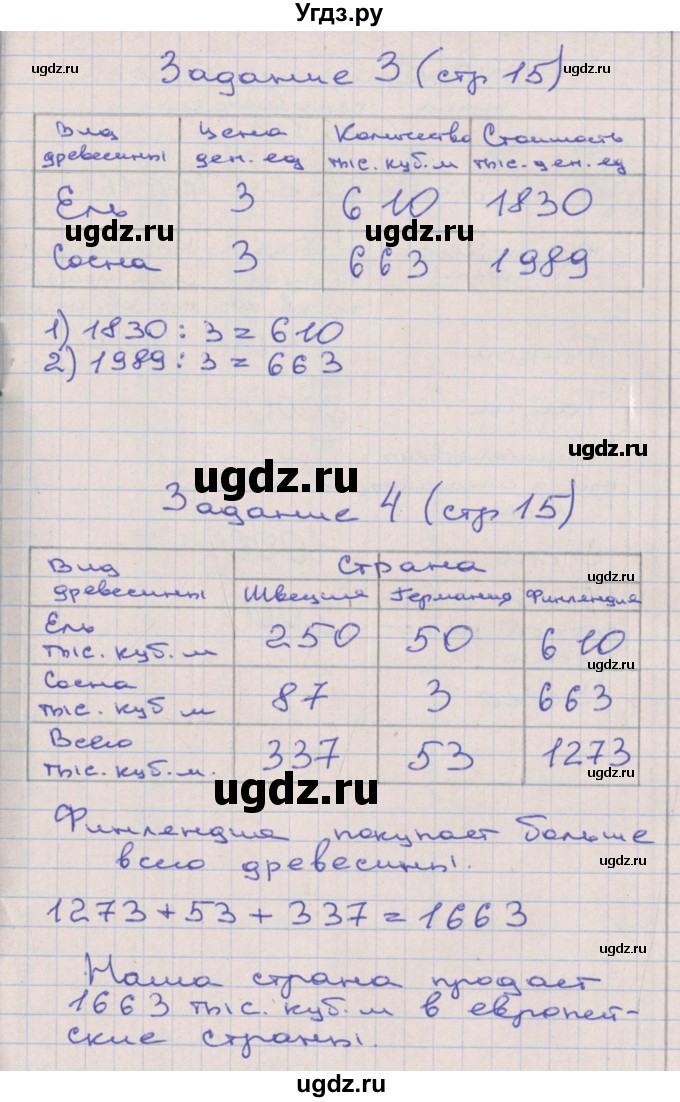 Угдз.ру
ugdz.ru ugdz.ru
Задание 3 (стр 15)
Вид древесины Цена ден. ед Количество тыс. куб. м Стоимость тыс. ден. ед
Ель 3 610 1830
ugdz.ru ugdz.ru ugdz.ru
Сосна 3 663 1989
1) 1830 : 3 = 610
2) 1989 : 3 = 663
ugdz.ru
ugdz.ru
Задание 4 (стр 15)
Вид древесины Страна
Швеция Германия Финлендия
ugdz.ru
Ель тыс. куб. м 250 50 610
ugdz.ru
Сосна тыс. куб м 87 3 663
Всего тыс. куб. м. 337 53 1273
ugdz.ru
ugdz.ru
Финлендия покупает больше
всего древесины.
ugdz.ru
1273 + 53 + 337 = 1663
ugdz.ru
Наша страна продает
1663 тыс. куб. м в европей-
ские страны.
ugdz.ru ugdz.ru
ugdz.ru